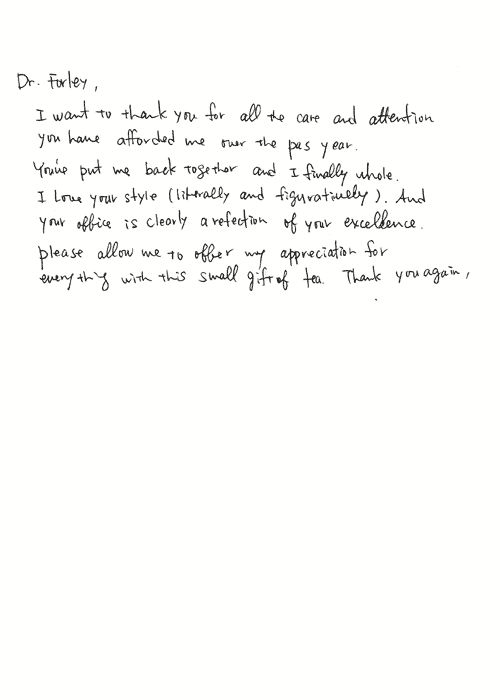 Dr. Furley,
I want to thank you for all the care and attention
you have afforded me over the pas year.
You've put me back together and I finally whole.
I Love your style (literally and figuratively). And
your office is clearly a refection of your excellence.
please allow me to offer my appreciation for
everything with this small gift of tea. Thank you again,